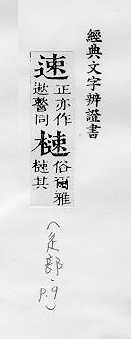 經典文字辨證書
速 正亦作
遬 同
俗爾雅
其
(辵部 p.9)